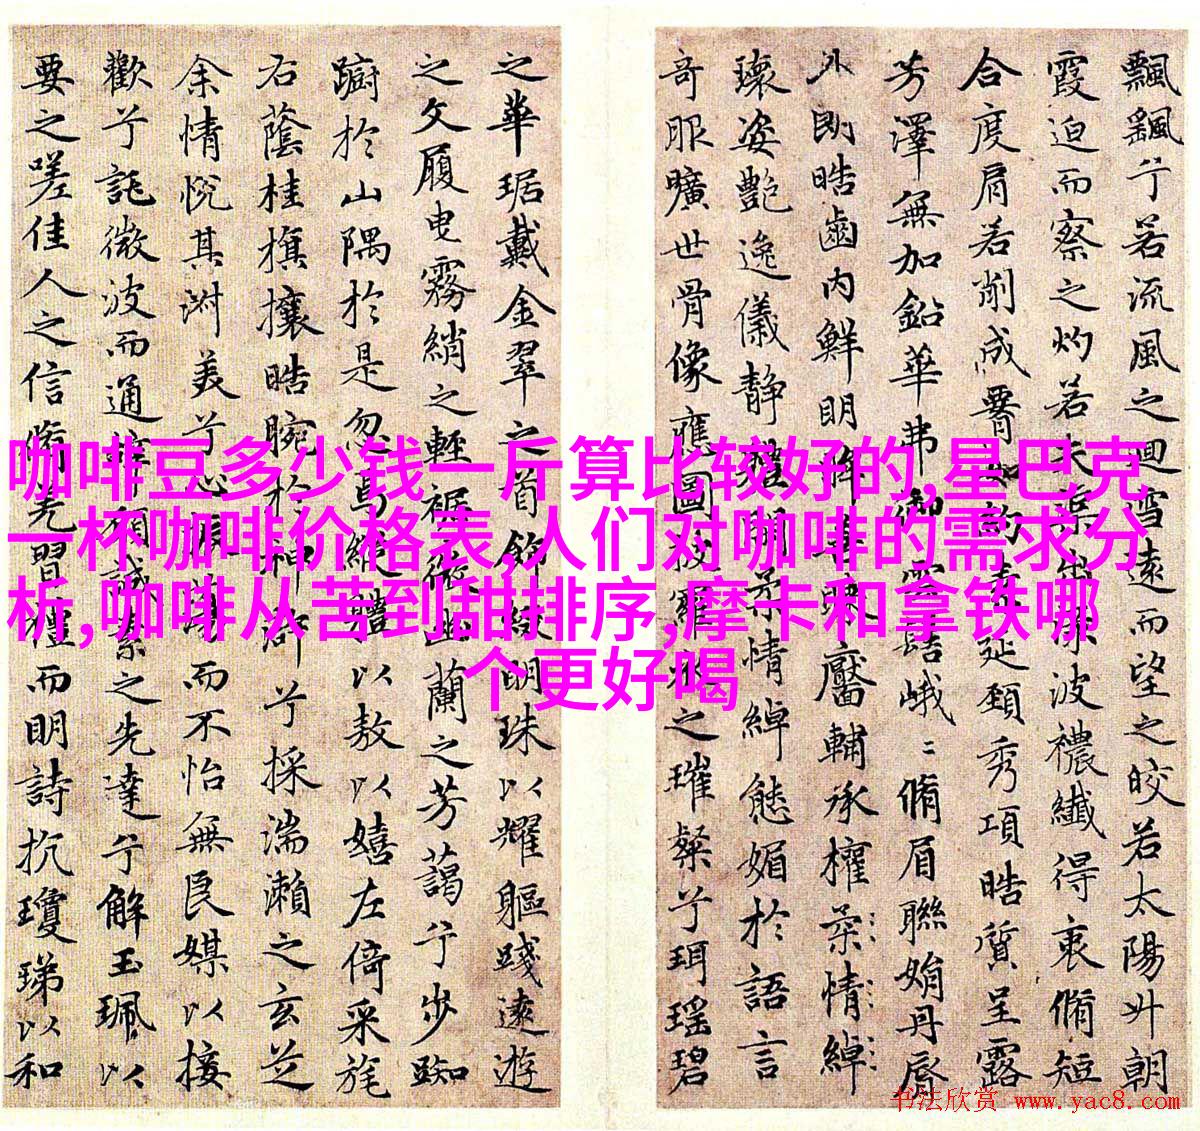 飄飖兮若流風之迴雪遠而望之皎若太陽升朝
霞迫而察之灼若夫渠出淥波襛纖得衷脩短
合度肩若削成腰如約素延頸秀項皓質呈露
芳澤無加鉛華弗御雲髻峨〻脩眉聯娟丹脣
外朗皓齒內鮮明眸善睞靨輔承權柔情綽
瓌姿豔逸儀靜體閑柔情綽態媚於語言
奇服曠世骨像應圖披羅衣之璀粲兮珥瑤碧
之華琚戴金翠之首飾綴明珠以耀軀踐遠遊
之文履曳霧綃之輕裾微幽蘭之芳藹兮步踟
躕於山隅於是忽焉縱體以敖以嬉左倚采旄
右蔭桂旗攘皓腕於神滸兮採湍瀨之玄芝
余情悅其淑美兮心振蕩而不怡無良媒以接
歡兮託微波而通辭願誠素之先達兮解玉珮以
要之嗟佳人之信脩羌習禮而明詩抗瓊珶以和
咖啡豆多少钱一斤算比较好的,星巴克
一杯咖啡价格表,人们对咖啡的需求分
析,咖啡从苦到甜排序,摩卡和拿铁哪
个更好喝
书法欣赏 www.yac8.com